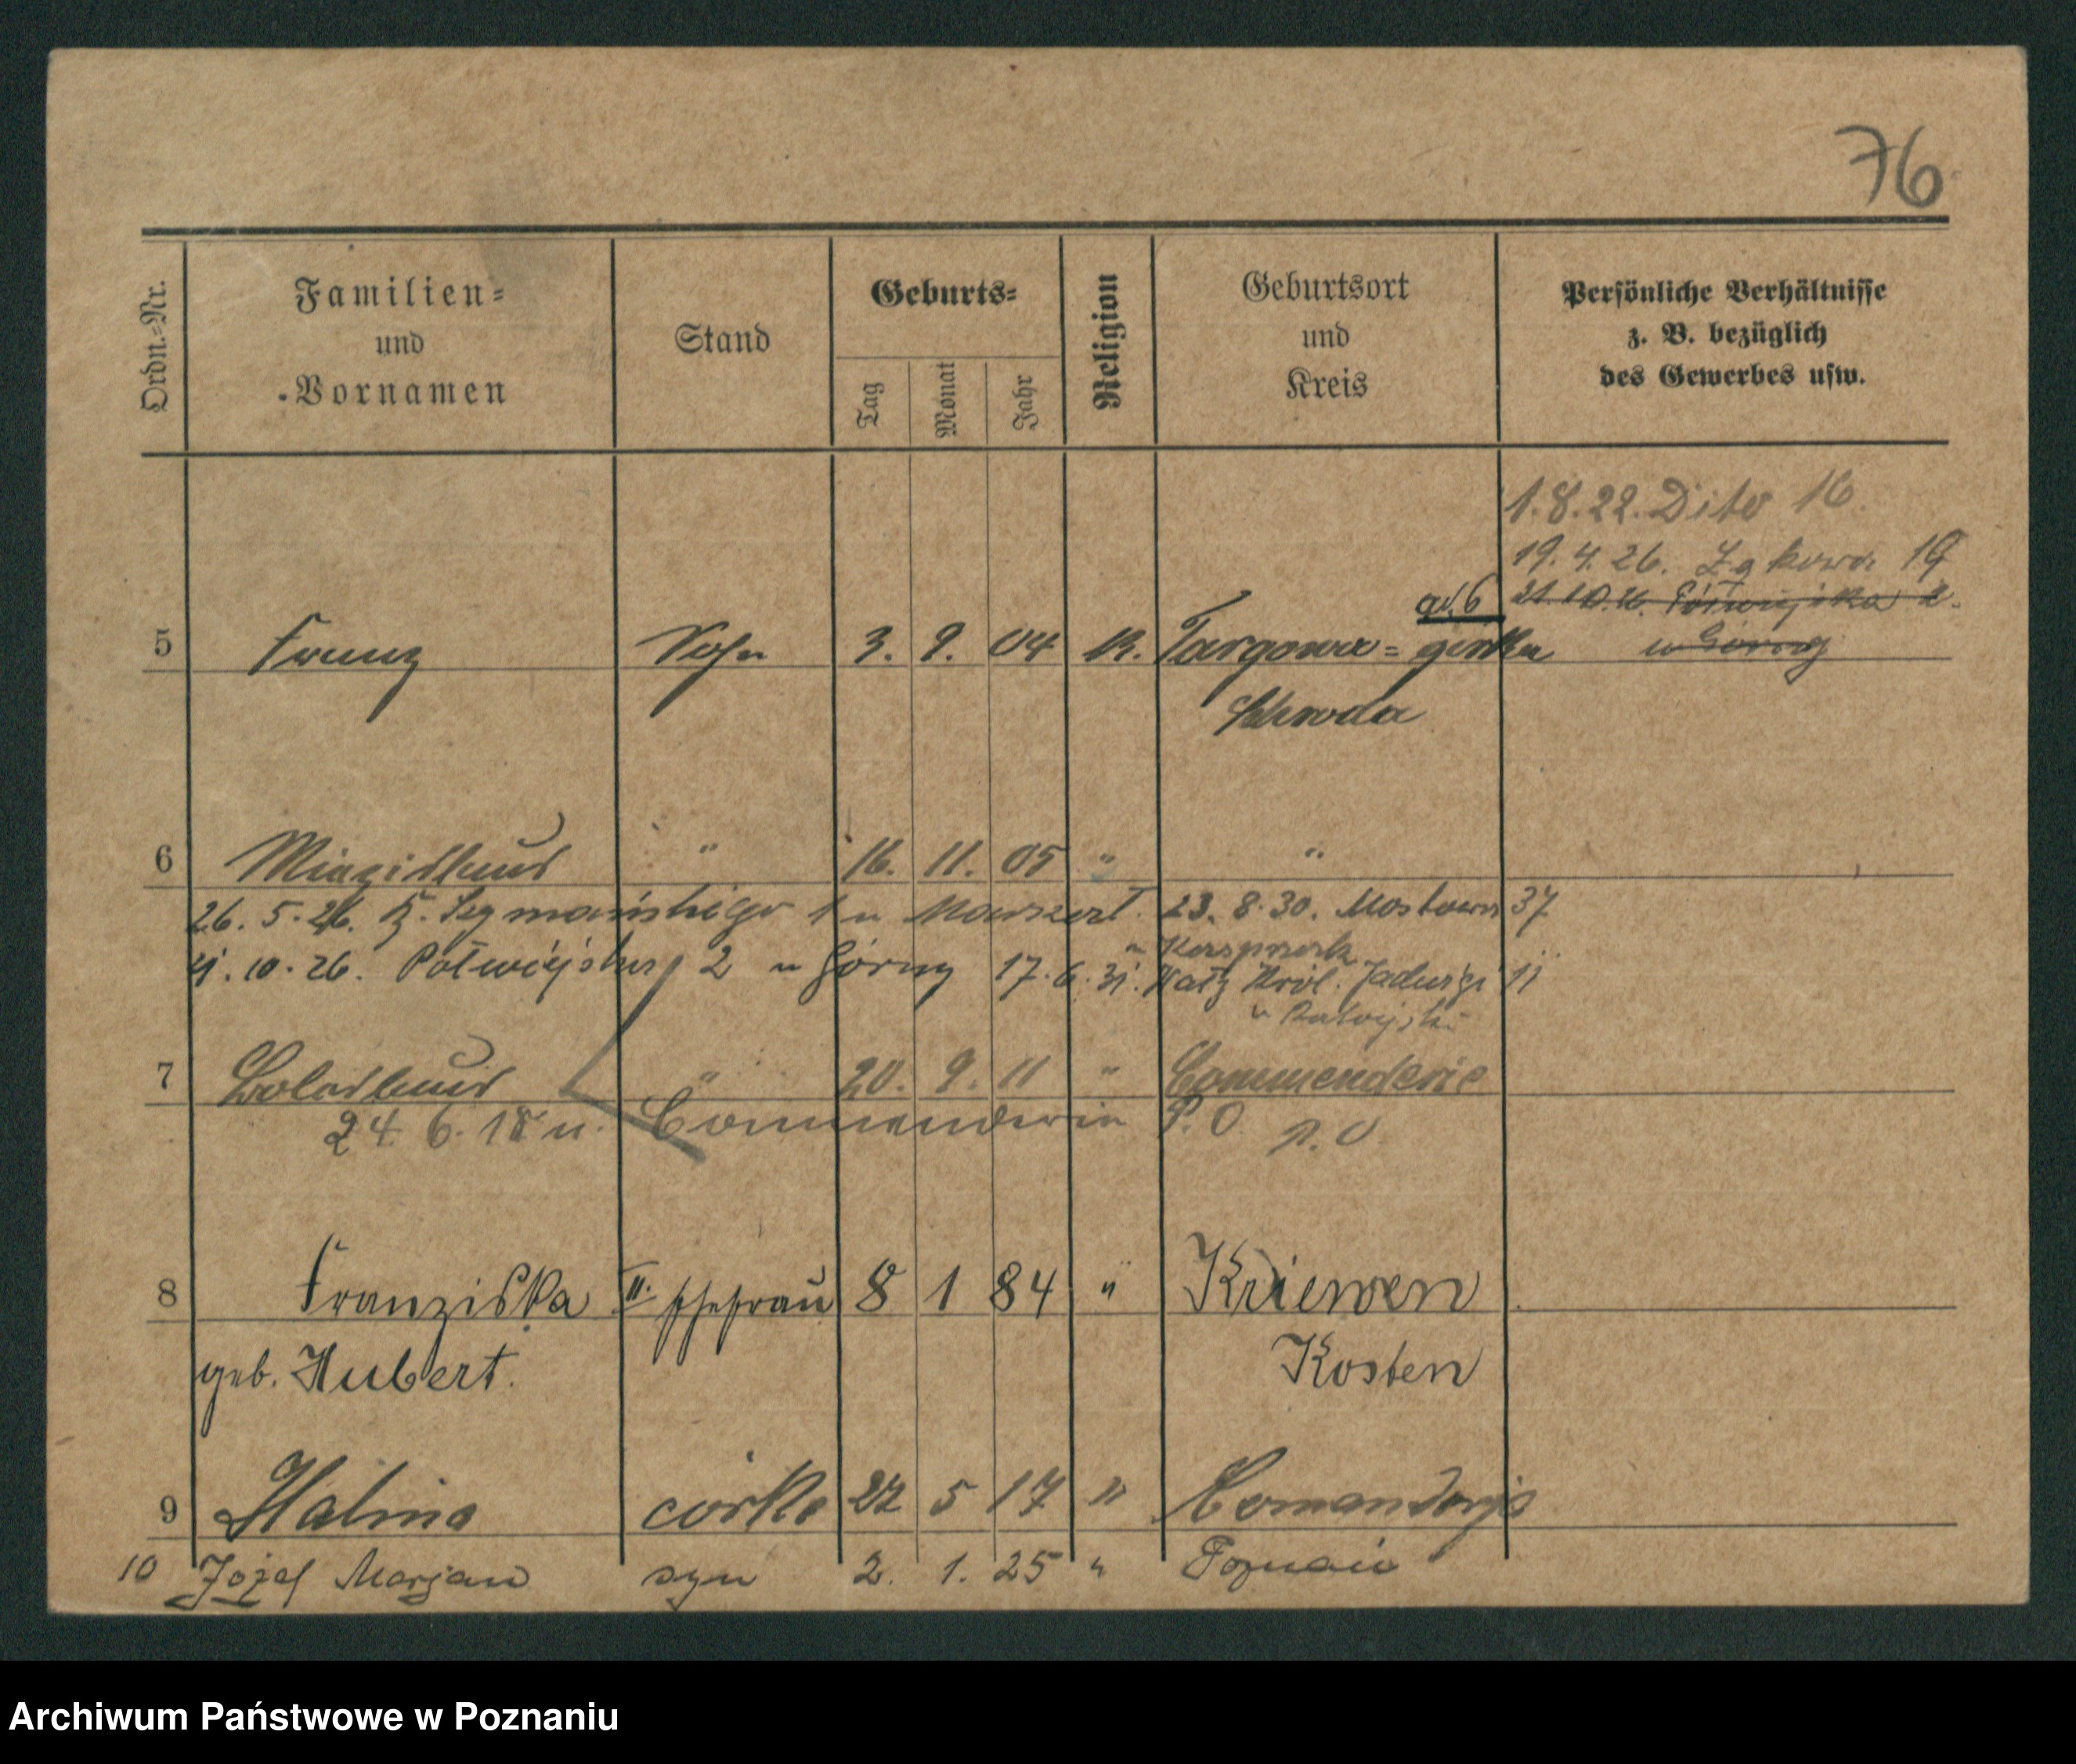 76
Ordn.-Nr.
Familien-
und
Vornamen
Stand
Geburts-
Tag
Monat
Jahr
Religion
Geburtsort
und
Kreis
Persönliche Verhältnisse
z. B. bezüglich
des Gewerbes usw.
1.8.22. Dito 16
19.4.26.
ad. 6
21.10.26. Półwiejska 2.
u Górny
5 Franz Sohn 3. 9. 04 K. Targowa-górka
Schroda
6 Miezislaus " 16. 11. 05 " "
26. 5. 26. 1 u 23. 8. 30. Mostowa 37
u Kasprzak
21. 10. 26. Półwiejska 2 u Górny 17. 6. 31. Król. Jadwigi 11
u
7 Boleslaus " 20. 9. 11 " Commenderie
24. 6. 18 u. Commenderie P. O. P. O
8 Franziska II. Ehefrau 8 1 84 " Kriewen
geb. Hubert. Kosten
9 Halina córka 22 5 17 " Komandorja
10 Józef Marjan syn 2. 1. 25 " Poznań
Archiwum Państwowe w Poznaniu